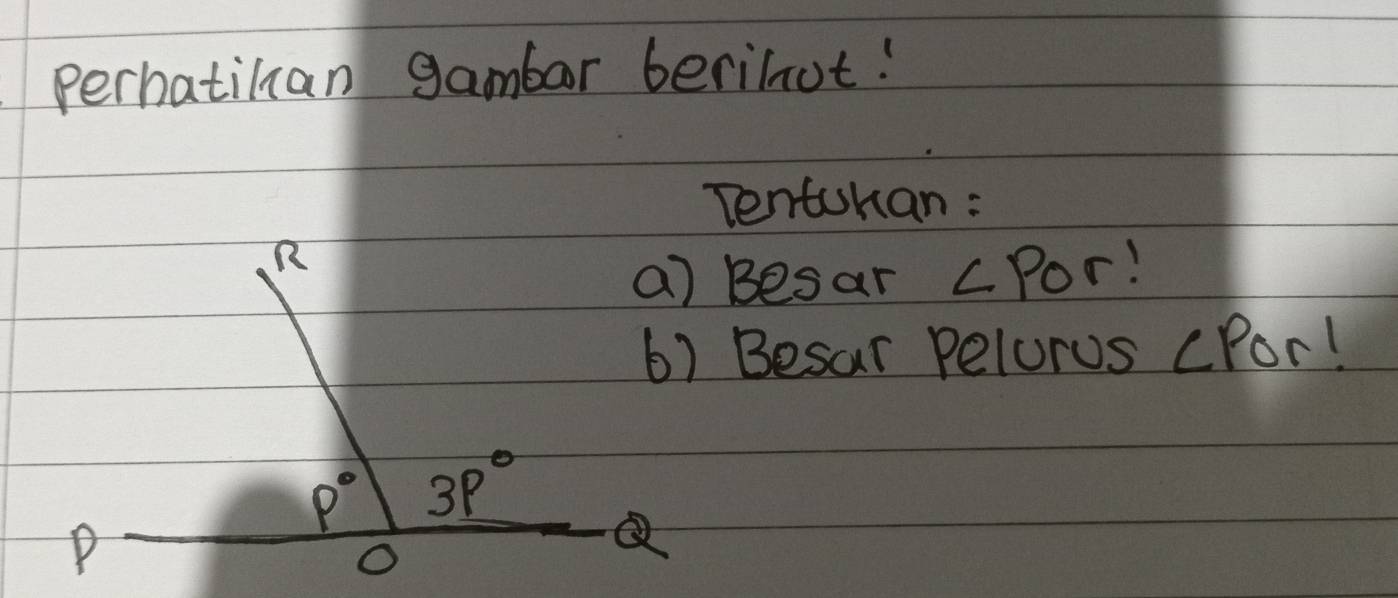 Perhatikan gambar berikut!
Tentukan:
a) Besar ∠Por!
b) Besar Pelurus ∠Por!
R
P° 3P°
P O Q